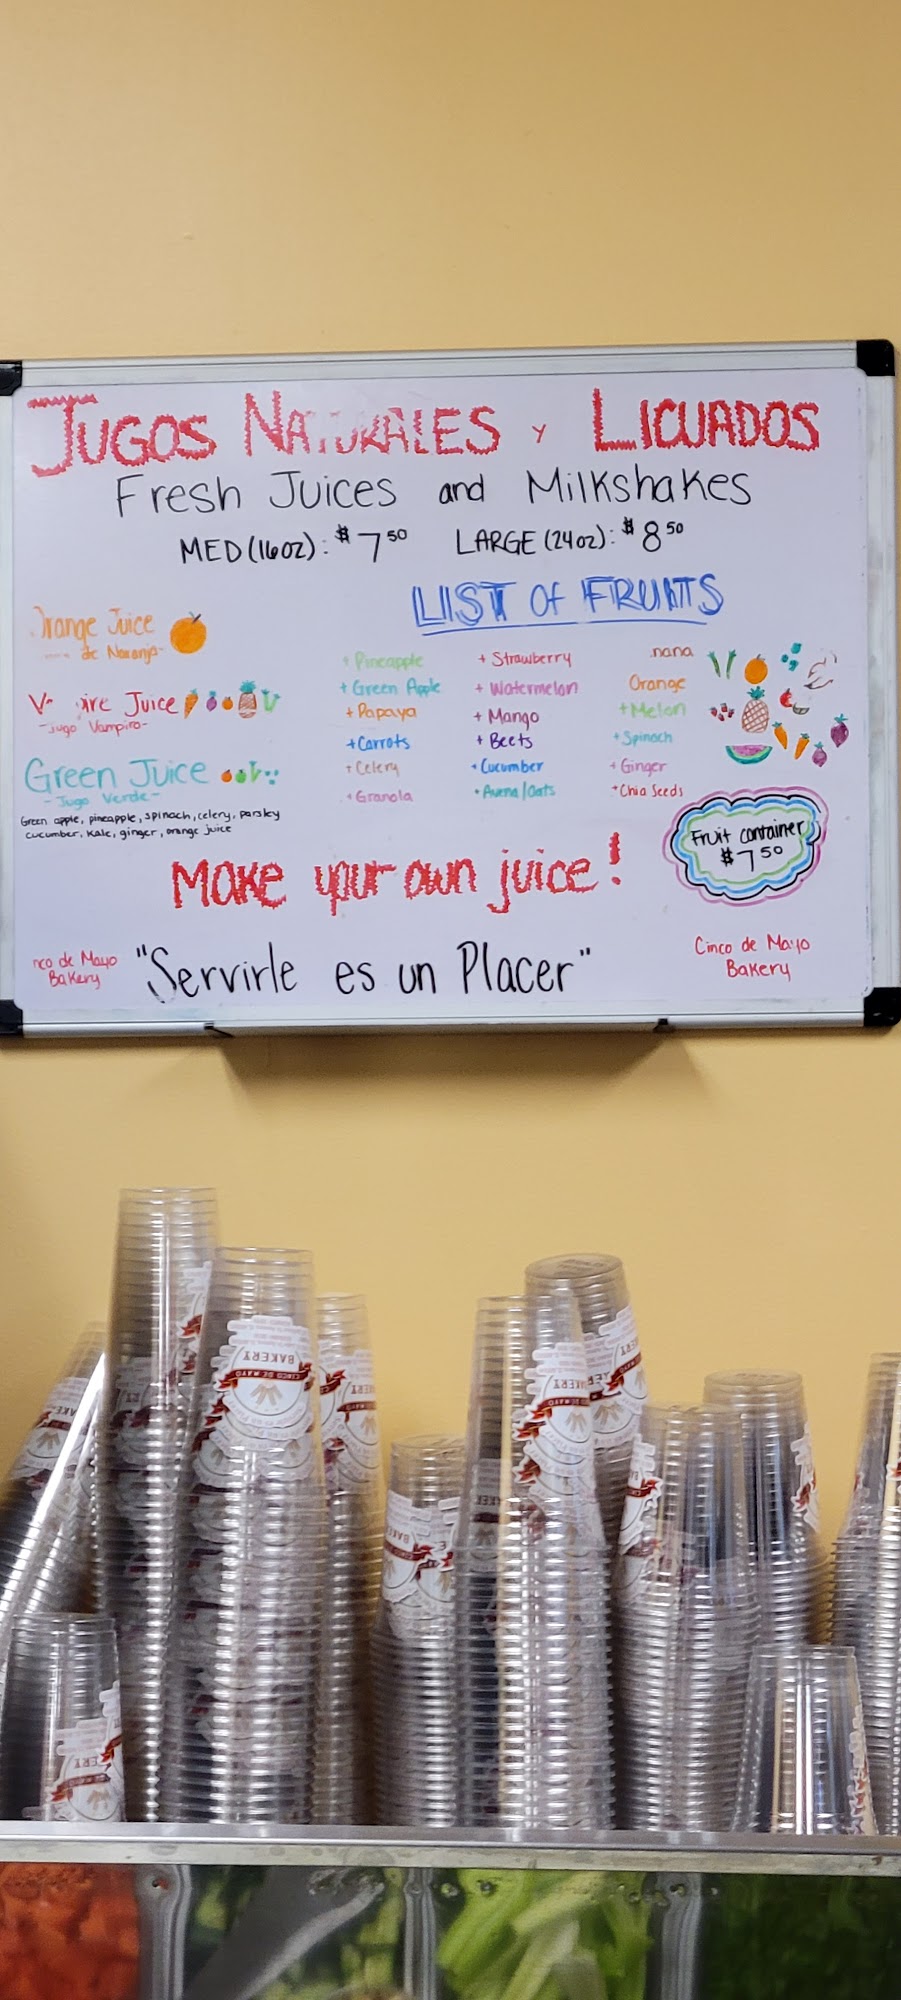 JUGOS NATURALES Y LICUADOS
Fresh Juices and Milkshakes
MED (16oz): $7.50 LARGE (24oz): $8.50
LIST Of FRUITS
Orange Juice
de Naranja-
Juice
-Jugo Vampiro-
Green Juice
- Jugo Verde -
Green apple, pineapple, spinach, celery, parsley
cucumber, kale, ginger, orange juice
+ Pineapple
+ Green Apple
+ Papaya
+ Carrots
+ Celery
+ Granola
+ Strawberry
+ Watermelon
+ Mango
+ Beets
+ Cucumber
+ Avena/Oats
nana
Orange
+ Melon
+ Spinach
+ Ginger
+ Chia Seeds
Fruit container
$7.50
Make your own juice!
nco de Mayo
Bakery
"Servirle es un Placer"
Cinco de Mayo
Bakery
BAKERY
CINCO DE MAYO